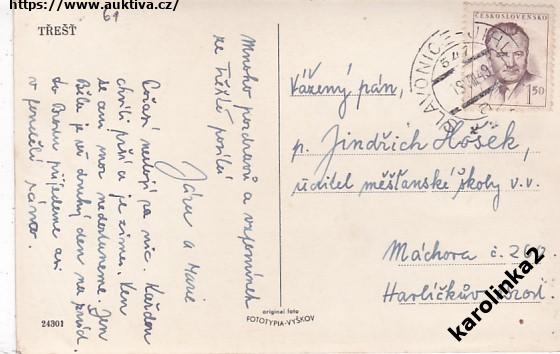 https://www.auktiva.cz/
61
TŘEŠŤ
Mnoho pozdravů a vzpomínek
ze Třeště posílá
Járu a Marie
Počasí nestojí za nic. Každou
chvíli prší a je zima. Ven
se ani moc nedostaneme. Jen
Běla je už druhý den na
do Brodu přijedeme asi
v pondělí ráno.
24301
original foto
FOTOTYPIA-VYŠKOV
ČESKOSLOVENSKO
1.50
SLAVONICE-JIHLAVA
Vážený pán,
p. Jindřich Hošek,
učitel měšťanské školy v.v.
Máchova č.
Havlíčkův Brod
karolinka2